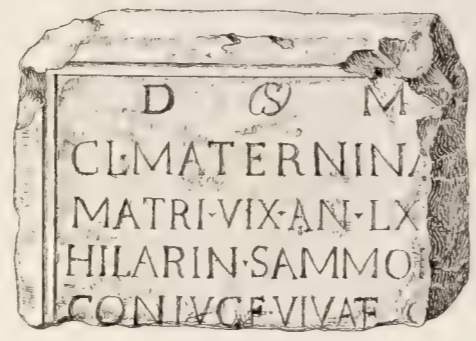 D S M
CL·MATERNINA
MATRI·VIX·AN·LX
HILARIN·SAMMO
CONIVGE·VIVAE